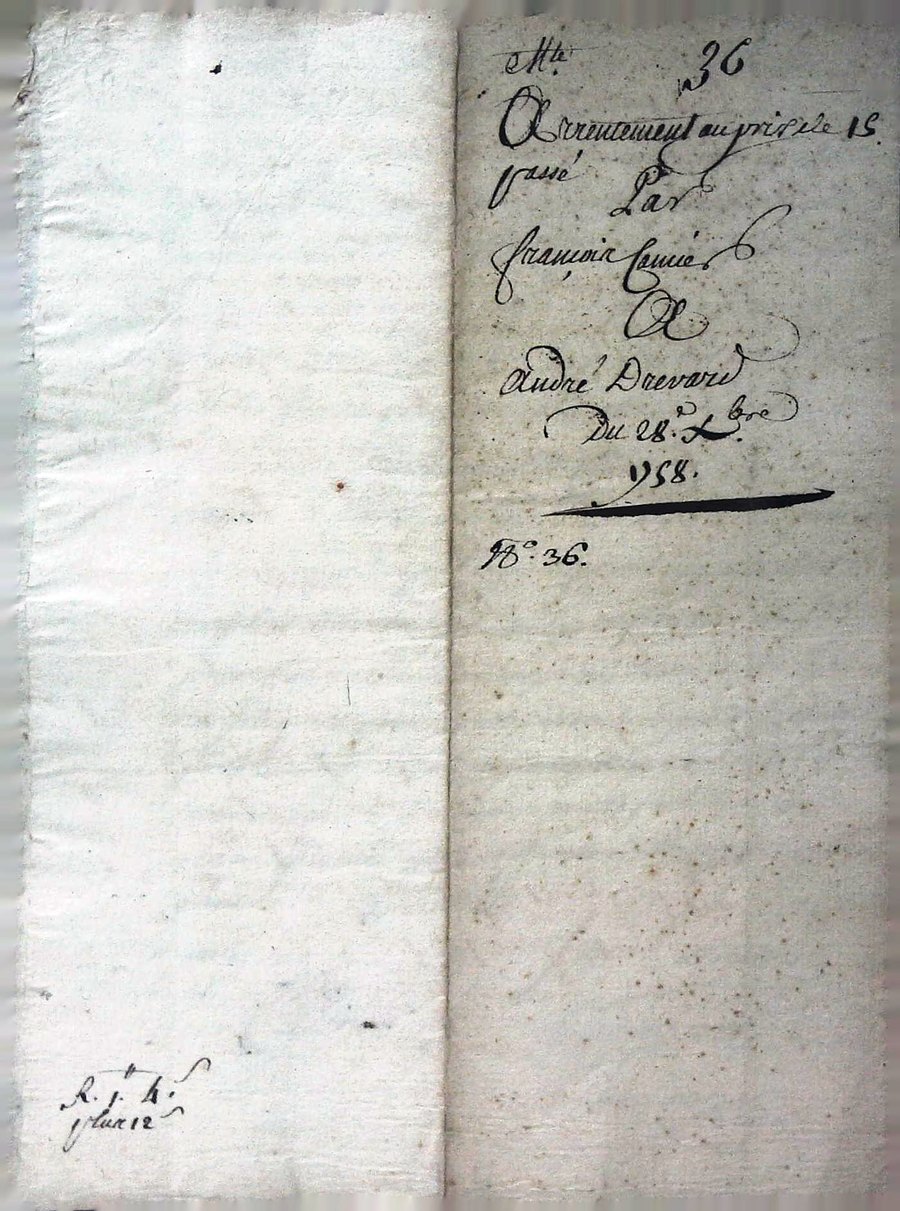 Mte 36
Arrentement au prix de 15
passé
Par
françois Camiers
A
André Drevard
Du 28.e Xbre
1758.
N.o 36.
R. 1. 4.s
plus 12s